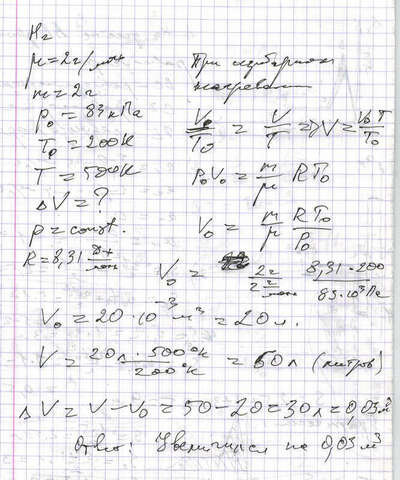 H₂
μ = 2г/моль
m = 2г
p₀ = 83 кПа
T₀ = 200K
T = 500K
ΔV = ?
p = const.
R = 8,31 Дж/моль
При изобарном
нагревании
V₀/T₀ = V/T => V = V₀T/T₀
p₀V₀ = m/μ RT₀
V₀ = m/μ RT₀/p₀
V₀ = 2г/2 г/моль 8,31·200/83·10³Па
V₀ = 20·10⁻³ м³ = 20 л.
V = 20л·500°K/200°K = 50л (литров)
ΔV = V - V₀ = 50 - 20 = 30л = 0,03 м³
Ответ: Увеличился на 0,03 м³